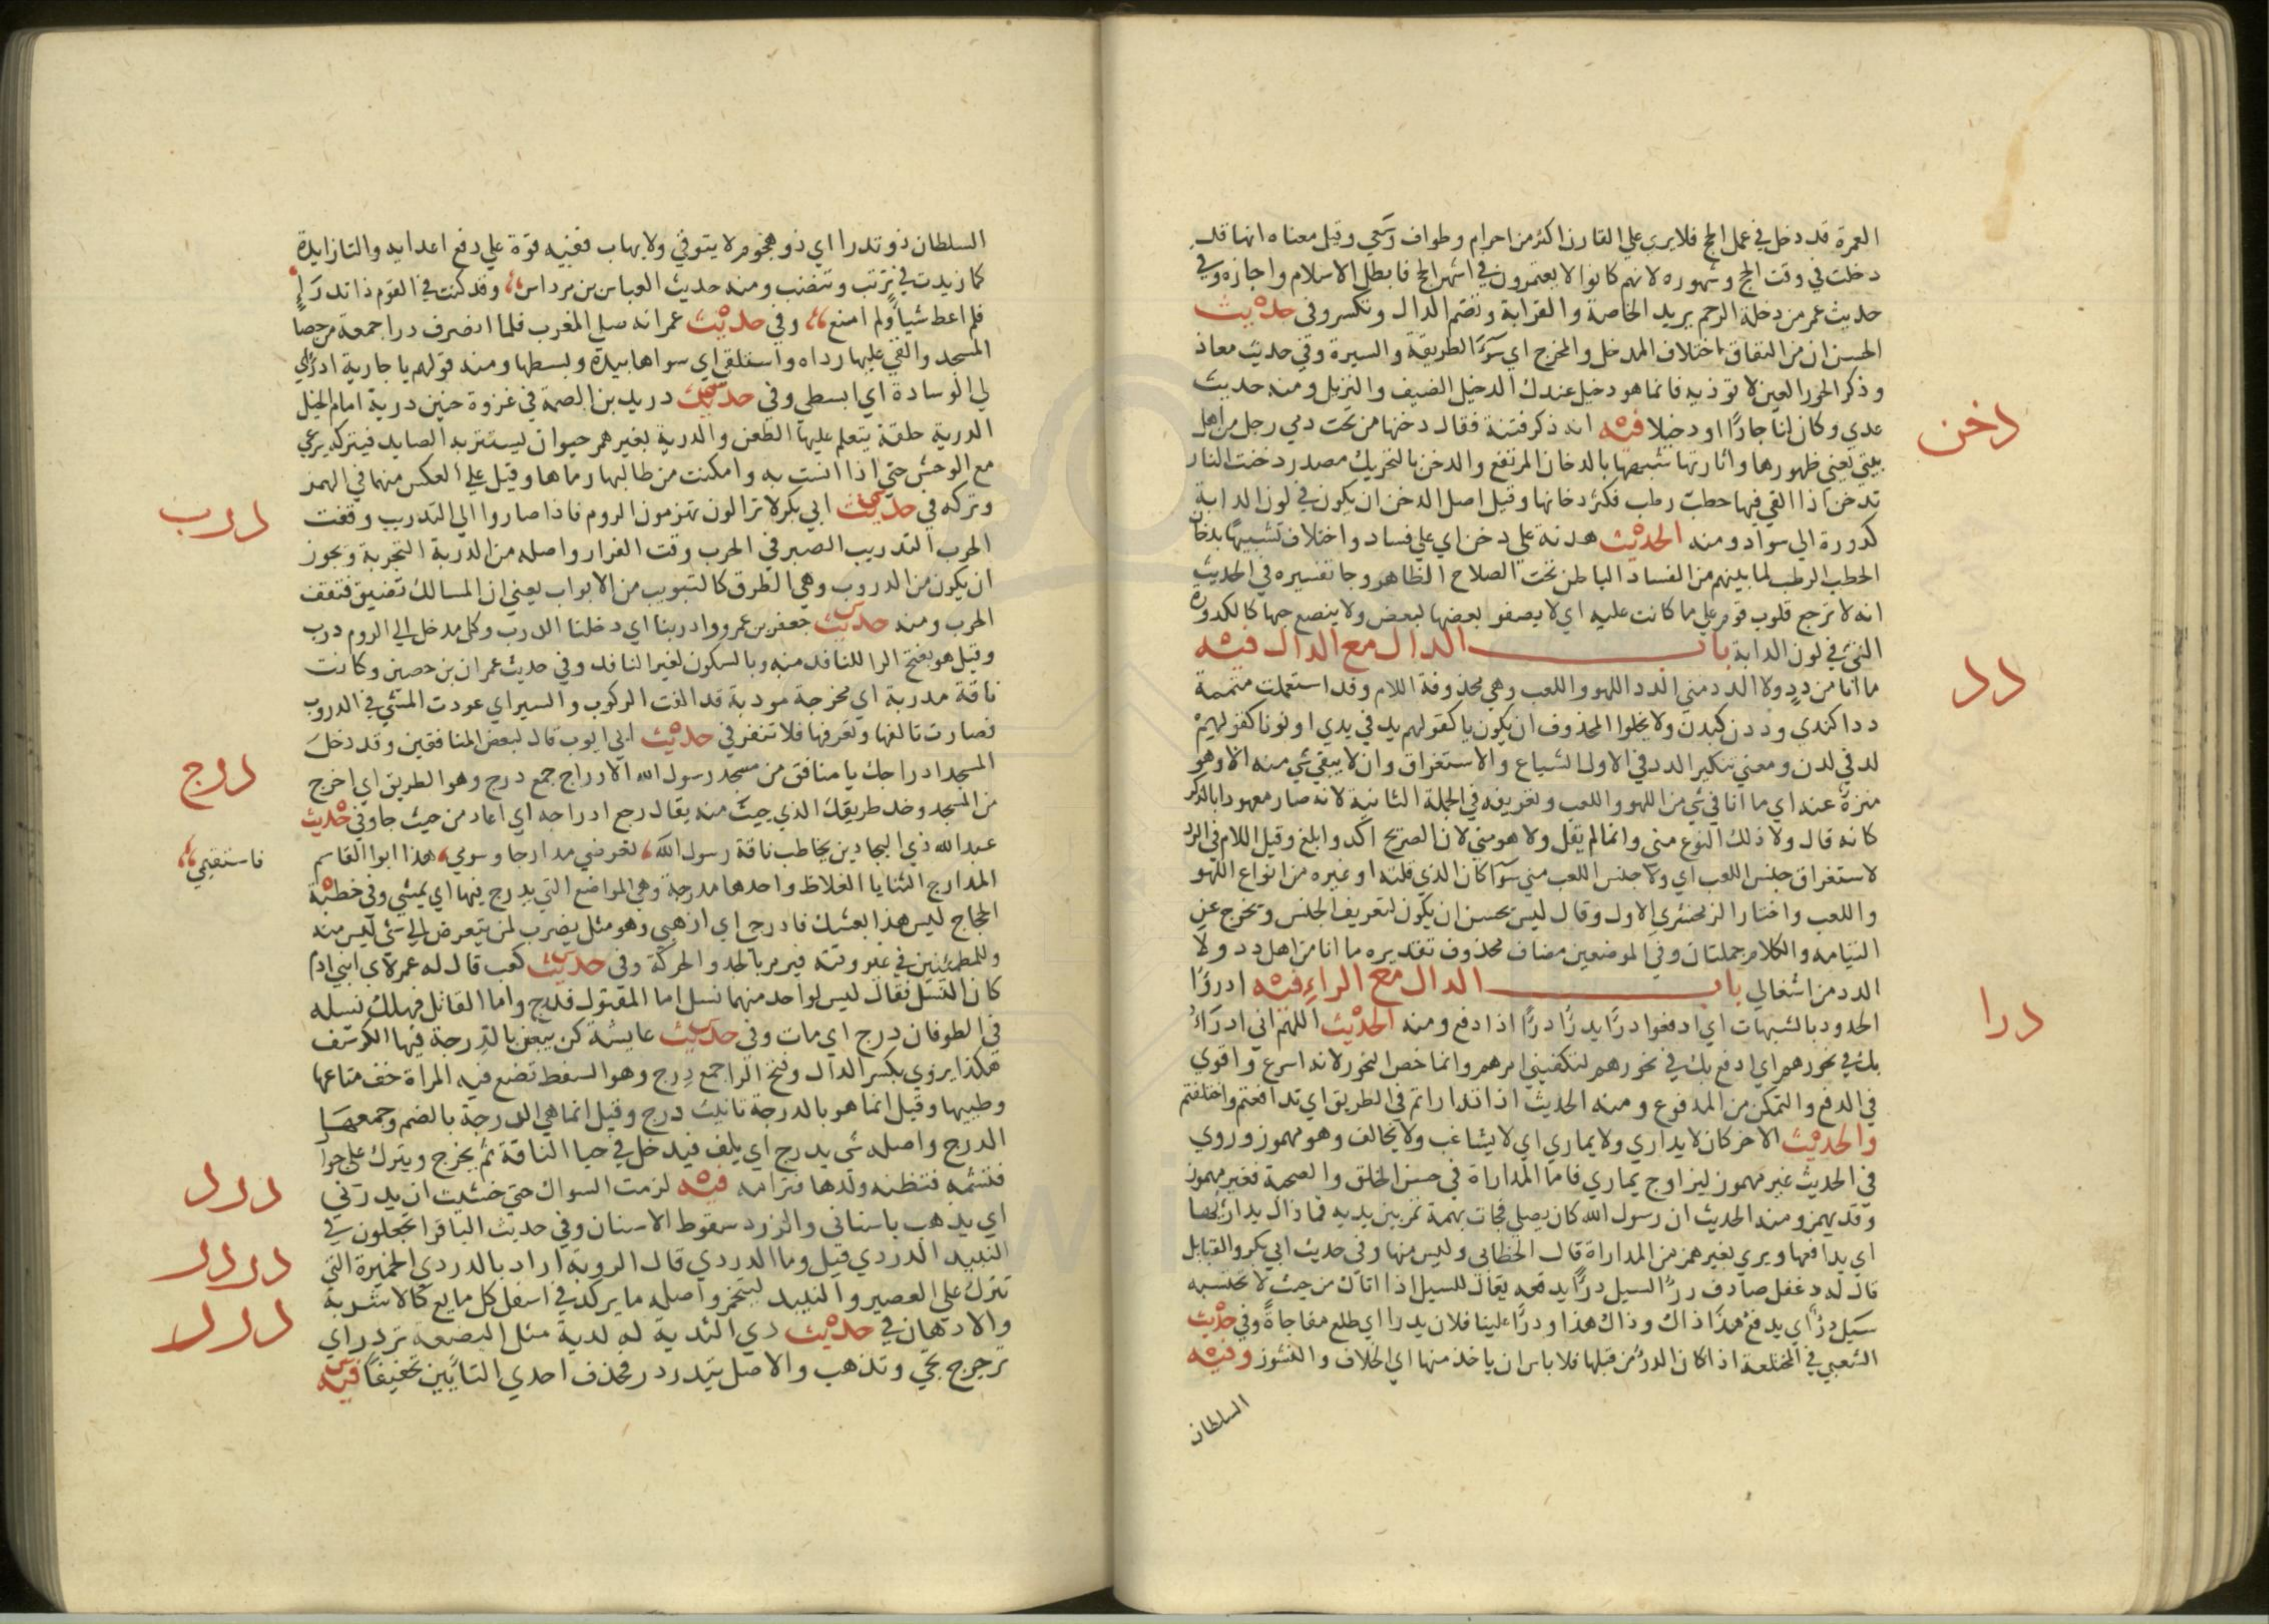 العمرة قد دخل في عمل الحج فلا يري علي القارن اكثر من احرام وطواف وسعي وقيل معناه انها قد
دخلت في وقت الحج وشهوره لانهم كانوا لا يعتمرون في اشهر الحج فابطل الاسلام واجازه وفي
حديث عمر من دخلة الرحم يريد الخاصة والقرابة وتضم الدال وتكسر وفي حديث
الحسن ان من النفاق اختلاف المدخل والمخرج اي سوء الطريقة والسيرة وفي حديث معاذ
وذكر الحور العين لا توذيه فانما هو دخيل عندك الدخيل الضيف والنزيل ومنه حديث
عدي وكان لنا جارا او دخيلا فيه انه ذكر فتنة فقال دخنها من تحت دمي رجل من اهل
دخن
بيتي يعني ظهورها واثارتها شبهها بالدخان المرتفع والدخن بالتحريك مصدر دخنت النار
تدخن اذا القي فيها حطب رطب فكثر دخانها وقيل اصل الدخن ان يكون في لون الدابة
كدورة الي سواد ومنه الحديث هدنة علي دخن اي علي فساد واختلاف تشبيها بدخان
الحطب الرطب لما بينهم من الفساد الباطن تحت الصلاح الظاهر وجا تفسيره في الحديث
انه لا ترجع قلوب قوم علي ما كانت عليه اي لا يصفو بعضها لبعض ولا ينصع حبها كالكدورة
التي في لون الدابة باب الدال مع الدال فيه
دد
ما انا من دد ولا الدد مني الدد اللهو واللعب وهي محذوفة اللام وقد استعملت متممة
ددا كندي وددن كبدن ولا يخلوا المحذوف ان يكون يا كقولهم يد في يدي او نونا كقولهم
لد في لدن ومعني تنكير الدد في الاول الشياع والاستغراق وان لا يبقي شي منه الا وهو
منزه عنه اي ما انا في شي من اللهو واللعب وتعريفه في الجملة الثانية لانه صار معهودا بالذكر
كانه قال ولا ذلك النوع مني وانما لم يقل ولا هو مني لان الصريح اكد وابلغ وقيل اللام في الدد
لاستغراق جنس اللعب اي ولا جنس اللعب مني سوا كان الذي قلته او غيره من انواع اللهو
واللعب واختار الزمخشري الاول وقال ليس بحسن ان يكون لتعريف الجنس ويخرج عن
التيامه والكلام جملتان وفي الموضعين مضاف محذوف تقديره ما انا من اهل دد ولا
الدد من اشغالي باب الدال مع الراء فيه ادروا
درا
الحدود بالشبهات اي ادفعوا درا يدرا درا اذا دفع ومنه الحديث اللهم اني ادرا
بك في نحورهم اي ادفع بك في نحورهم لتكفيني امرهم وانما خص النحور لانه اسرع واقوي
في الدفع والتمكن من المدفوع ومنه الحديث اذا تداراتم في الطريق اي تدافعتم واختلفتم
والحديث الاخر كان لا يداري ولا يماري اي لا يشاغب ولا يخالف وهو مهموز وروي
في الحديث غير مهموز ليزاوج يماري فاما المداراة في حسن الخلق والصحبة فغير مهموز
وقد يهمز ومنه الحديث ان رسول الله كان يصلي فجات بهمة تمر بين يديه فما زال يدارئها
اي يدافعها ويروي بغير همز من المداراة قال الخطابي وليس منها وفي حديث ابي بكر والقبايل
قال له دغفل صادف درا السيل درا يدفعه يقال للسيل اذا اتاك من حيث لا تحتسبه
سيل درا اي يدفع هذا ذاك وذاك هذا ودرا علينا فلان يدرا اي طلع مفاجاة وفي حديث
الشعبي في المختلعة اذا كان الدر من قبلها فلا باس ان ياخذ منها اي الخلاف والنشوز وفيه
السلطان
السلطان ذو تدرا اي ذو هجوم لا يتوقي ولا يهاب ففيه قوة علي دفع اعدايه والتا زايدة
كما زيدت في ترتب وتنضب ومنه حديث العباس بن مرداس وقد كنت في القوم ذا تدرا
فلم اعط شيا ولم امنع وفي حديث عمر انه صلي المغرب فلما انصرف درا جمعة من حصا
المسجد والقي عليها رداه واستلقي اي سواها بيده وبسطها ومنه قولهم يا جارية ادراي
لي الوسادة اي ابسطي وفي حديث دريد بن الصمة في غزوة حنين درية امام الخيل
الدرية حلقة يتعلم عليها الطعن والدرية بغير همز حيوان يستتر به الصايد فيتركه يرعي
مع الوحش حتي اذا انست به وامكنت من طالبها رماها وقيل علي العكس منهما في الهمز
وتركه في حديث ابي بكر لا تزالون تهزمون الروم فاذا صاروا الي التدريب وقفت
درب
الحرب التدريب الصبر في الحرب وقت الفرار واصله من الدربة التجربة ويجوز
ان يكون من الدروب وهي الطرق كالتبويب من الابواب يعني ان المسالك تضيق فتقف
الحرب ومنه حديث جعفر بن عمرو وادربنا اي دخلنا الدرب وكل مدخل الي الروم درب
وقيل هو بفتح الرا للنافذ منه وبالسكون لغير النافذ وفي حديث عمران بن حصين وكانت
ناقة مدربة اي مخرجة مودبة قد الفت الركوب والسير اي عودت المشي في الدروب
فصارت تالفها وتعرفها فلا تنفر في حديث ابي ايوب قال لبعض المنافقين وقد دخل
المسجد ادراجك يا منافق من مسجد رسول الله الادراج جمع درج وهو الطريق اي اخرج
درج
من المسجد وخذ طريقك الذي جيت منه يقال رجع ادراجه اي اعاد من حيث جا وفي حديث
عبد الله ذي البجادين يخاطب ناقة رسول الله تعرضي مدارجا وسومي هذا ابوا القاسم
فاستقيمي
المدارج الثنايا الغلاظ واحدها مدرجة وهي المواضع التي يدرج فيها اي يمشي وفي خطبة
الحجاج ليس هذا بعشك فادرجي اي اذهبي وهو مثل يضرب لمن يتعرض الي شي ليس منه
وللمطمئنين في غير وقته فيومر بالجد والحركة وفي حديث كعب قال له عمر لاي ابني ادم
كان النسل فقال ليس لواحد منهما نسل اما المقتول فدرج واما القاتل فهلك نسله
في الطوفان درج اي مات وفي حديث عايشة كن يبعثن بالدرجة فيها الكرسف
هكذا يروي بكسر الدال وفتح الرا جمع درج وهو السفط تضع فيه المراة خف متاعها
وطيبها وقيل انما هو بالدرجة تانيث درج وقيل انما هي الدرجة بالضم وجمعها
الدرج واصله شي يدرج اي يلف فيدخل في حيا الناقة ثم يخرج ويترك علي حوار
فتشمه فتظنه ولدها فترامه فيه لزمت السواك حتي خشيت ان يدردني
درد
اي يذهب باسناني والدرد سقوط الاسنان وفي حديث الباقر اتجعلون في
النبيذ الدردي قيل وما الدردي قال الروبة اراد بالدردي الخميرة التي
دردر
تترك علي العصير والنبيذ ليتخمر واصله ما يركد في اسفل كل مايع كالاشربة
والادهان في حديث ذي الثدية له ثدية مثل البضعة تردر اي
درر
ترجرج تجي وتذهب والاصل تتدردر فحذف احدي التايين تخفيفا فيه